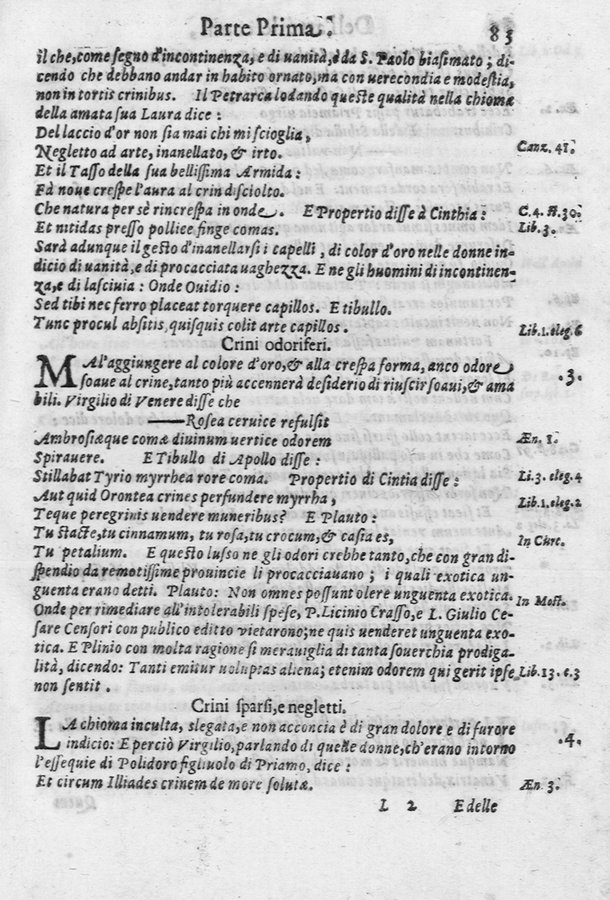 Parte Prima. 83
il che, come segno d'incontinenza, e di uanità, è da S. Paolo biasimato ; di-
cendo che debbano andar in habito ornato, ma con uerecondia e modestia,
non in tortis crinibus. Il Petrarca lodando queste qualità nella chioma
della amata sua Laura dice :
Del laccio d'or non sia mai chi mi scioglia,
Negletto ad arte, inanellato, & irto. Canz. 48.
Et il Tasso della sua bellissima Armida :
Fà noue crespe l'aura al crin disciolto.
Che natura per sè rincrespa in onde. E Propertio disse à Cinthia : C. 4. st. 30.
Et nitidas presso pollice finge comas. Lib. 3.
Sarà adunque il gesto d'inanellarsi i capelli , di color d'oro nelle donne in-
dicio di uanità, e di procacciata uaghezza. E ne gli huomini di incontinen-
za, e di lasciuia : Onde Ouidio :
Sed tibi nec ferro placeat torquere capillos. E tibullo.
Tunc procul absitis, quisquis colit arte capillos . Lib. 1. eleg. 6
Crini odoriferi.
MAl'aggiungere al colore d'oro, & alla crespa forma, anco odore .3.
soaue al crine, tanto più accennerà desiderio di riuscir soaui, & ama
bili. Virgilio di Venere disse che
——Rosea ceruice refulsit
Ambrosiæque comæ diuinum uertice odorem Æn. 1.
Spirauere. E Tibullo di Apollo disse :
Stillabat Tyrio myrrhea rore coma. Propertio di Cintia disse : Li. 3. eleg. 4
Aut quid Orontea crines perfundere myrrha, Lib. 1. eleg. 2
Teque peregrinis uendere muneribus? E Plauto :
Tu stacte, tu cinnamum, tu rosa, tu crocum, & casia es, In Curc.
Tu petalium. E questo lusso ne gli odori crebbe tanto, che con gran di-
spendio da remotissime prouincie li procacciauano ; i quali exotica un-
guenta erano detti. Plauto: Non omnes possunt olere unguenta exotica. In Most.
Onde per rimediare all'intolerabili spese, P. Licinio Crasso, e L. Giulio Ce-
sare Censori con publico editto vietarono; ne quis uenderet unguenta exo-
tica. E Plinio con molta ragione si merauiglia di tanta souerchia prodiga-
lità, dicendo: Tanti emitur uoluptas aliena; etenim odorem qui gerit ipse Lib. 13. c. 3
non sentit .
Crini sparsi, e negletti.
LA chioma inculta, slegata, e non acconcia è di gran dolore e di furore .4.
indicio: E perciò Virgilio, parlando di quelle donne, ch'erano intorno
l'essequie di Polidoro figliuolo di Priamo, dice :
Et circum Illiades crinem de more solutæ. Æn. 3.
L 2 E delle